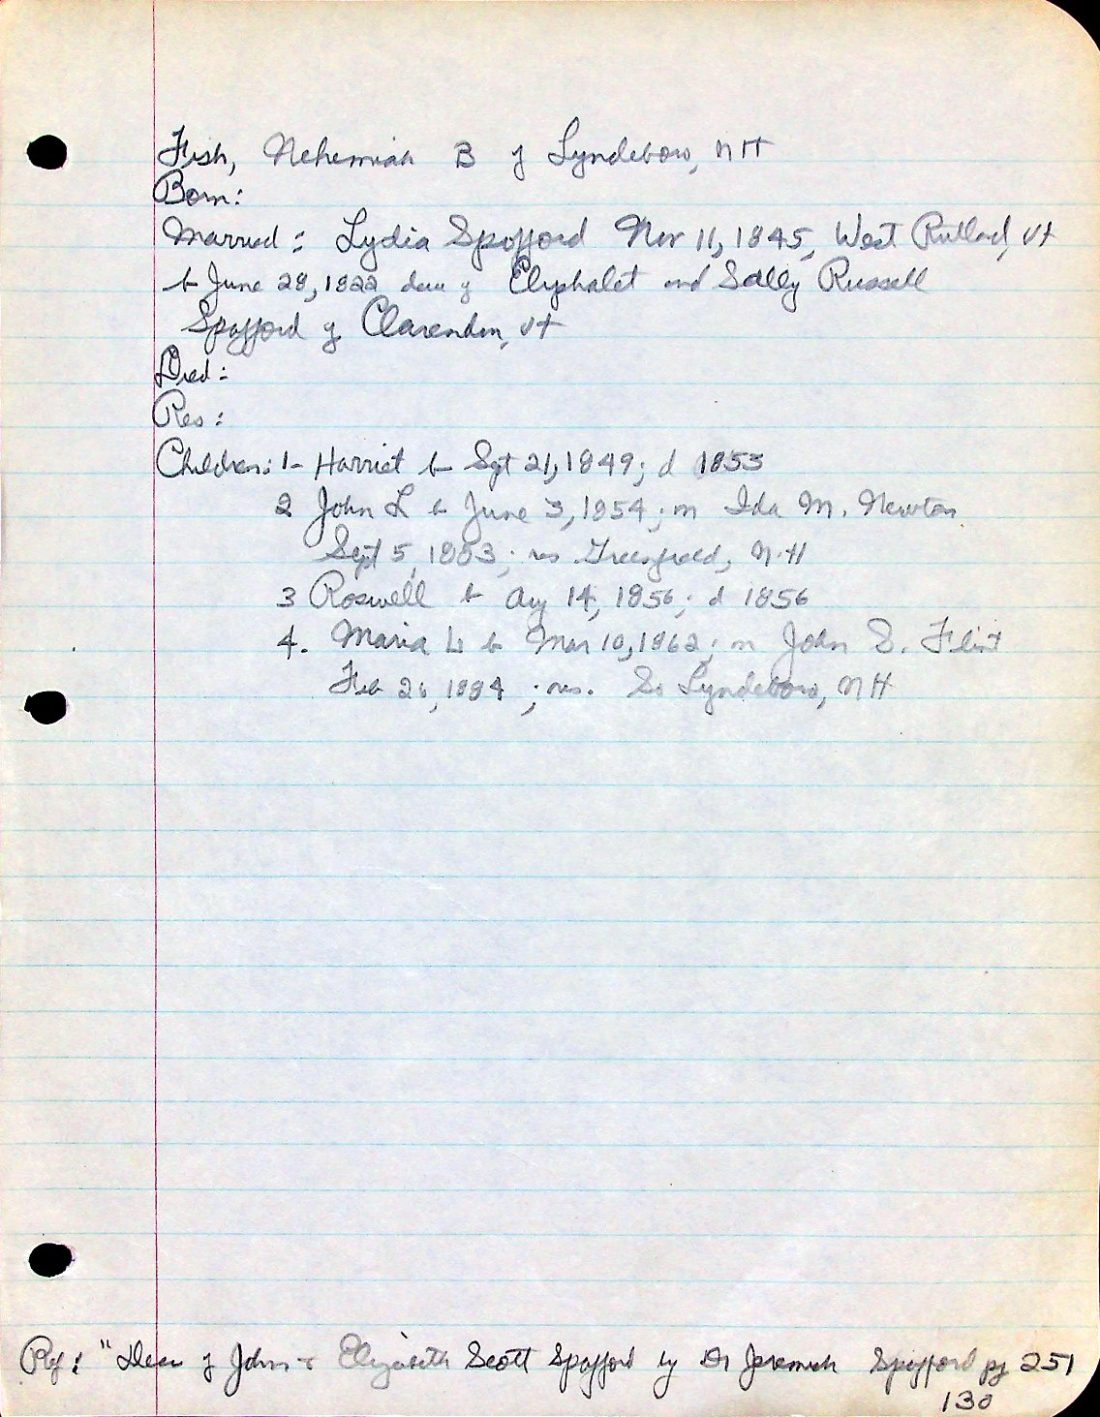 Fish, Nehemiah B of Lyndeboro, NH
Born:
Married: Lydia Spofford Nov 11, 1845, West Rutland, Vt
b June 28, 1822 dau of Eliphalet and Sally Russell
Spofford of Clarendon, Vt
Died:
Res:
Children: 1- Harriet b Sept 21, 1849; d 1853
2 John L b June 3, 1854; m Ida M. Newton
Sept 5, 1883; res Greenfield, N.H
3 Roswell b Aug 14, 1856; d 1856
4. Maria b Mar 10, 1862; m John S. Flint
Feb 26, 1884; res. So Lyndeboro, NH
Ref: "Desc of John & Elizabeth Scott Spofford by Dr Jeremiah Spofford pg 251
130